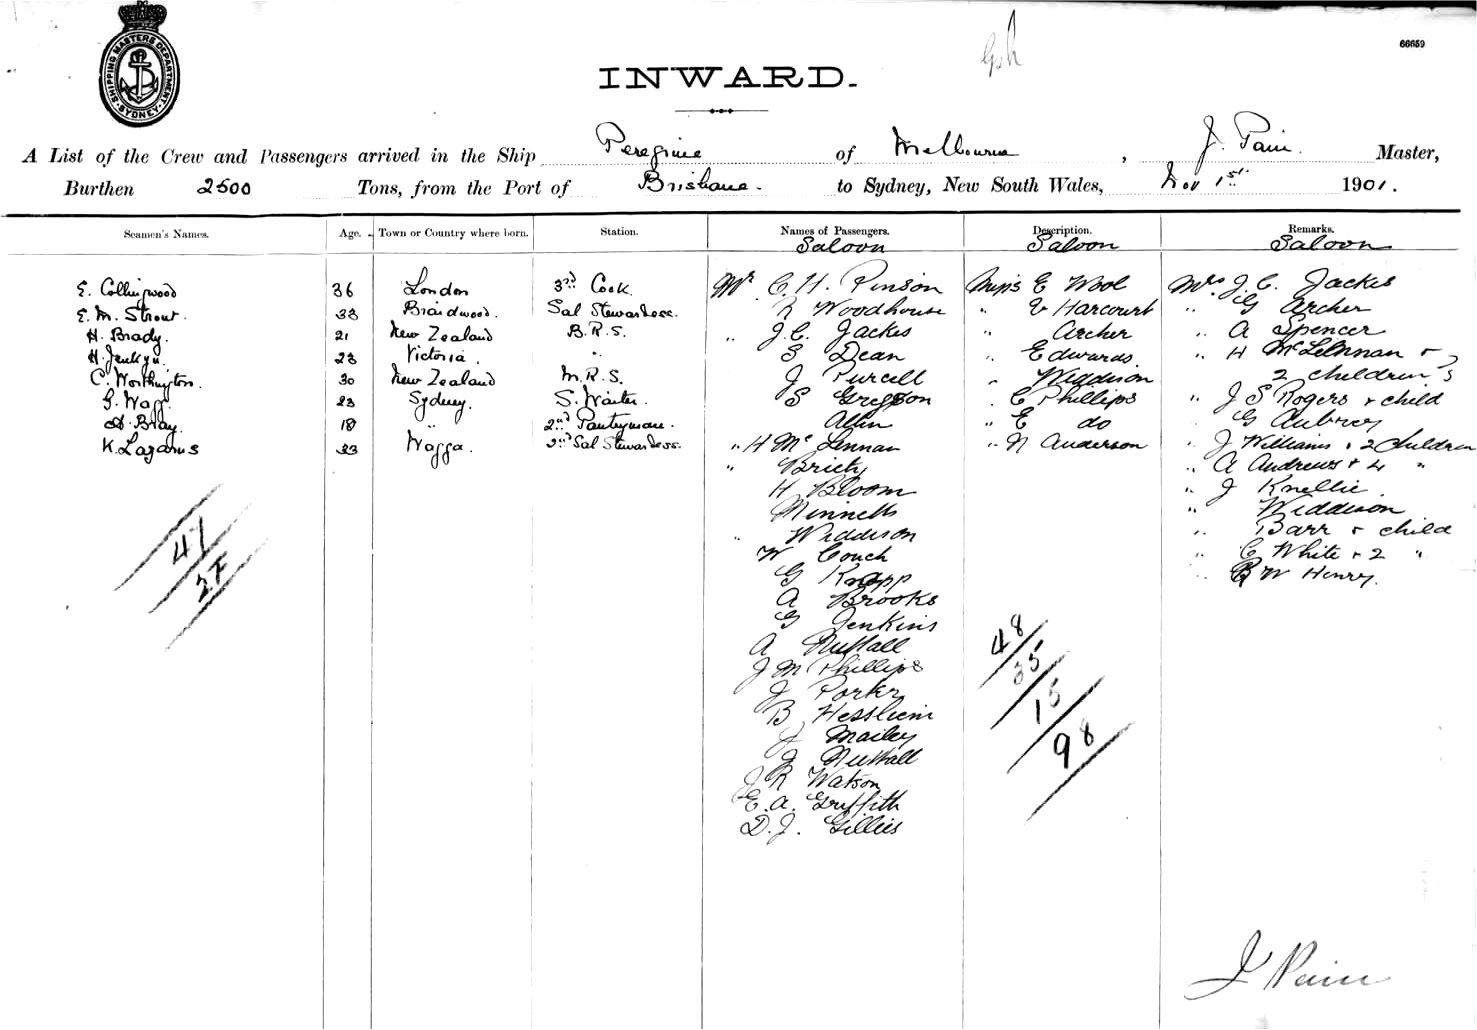 SHIPPING MASTERS DEPARTMENT
SYDNEY
66659
INWARD.
A List of the Crew and Passengers arrived in the Ship Peregrine of Melbourne, J. Pain. Master,
Burthen 2500 Tons, from the Port of Brisbane. to Sydney, New South Wales, Nov 1st 1901.
Seamen's Names. Age. Town or Country where born. Station. Names of Passengers. Description. Remarks.
Saloon Saloon Saloon
E. Collingwood 36 London 3rd Cook.
E. M. Strout. 33 Braidwood. Sal Stewardess.
H. Brady. 21 New Zealand B.R.S.
H. Jenkyn. 23 Victoria. "
C. Worthington. 30 New Zealand M.R.S.
G. Wagg. 23 Sydney. S. Waiter.
A. Bray. 18 " 2nd Pantryman.
K. Lazarus 33 Wagga. 2nd Sal Stewardess.
47
37
Mr C. H. Pinson
R Woodhouse
" J. C. Jackes
S Dean
J Purcell
S Gregson
" H McLennan
" Briety
H Bloom
Minnett
" Widdison
W Couch
G Knapp
A Brooks
G Jenkins
A Nuttall
J M Phillips
J Porter
B Hesslein
J Mailey
J Nuttall
J R Watson
E. A. Griffith
D. J. Gillies
Miss E Wool
" V Harcourt
" Archer
" Edwards
" Widdison
" C Phillips
" E do
" N Anderson
48
35
15
98
Mrs J. C. Jackes
" G Archer
" A Spencer
" H McLennan +
2 children
" J S Rogers + child
" G Aubrey
" J Williams + 2 Children
" A Andrews + 4 "
" J Knellie.
" Widdison
" Barr + child
" C White + 2 "
" B W Henry.
J Pain